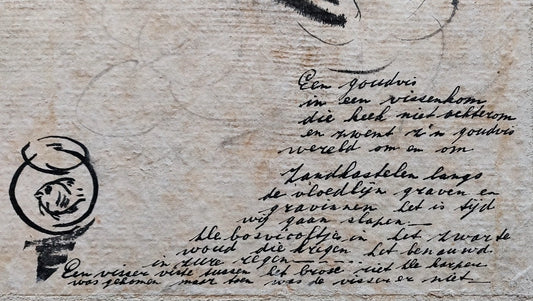 Een goudvis
in een vissenkom
die keek niet achterom
en zwemt z'n goudvis
wereld om en om
Zandkastelen langs
de vloedlijn graven en
gravinnen het is tijd
wij gaan slapen
De bosviooltjes in het zwarte
woud die kregen het benauwd
in zure regen
Een visser viste tussen het broze riet de karper
was gekomen maar toen was de visser er niet